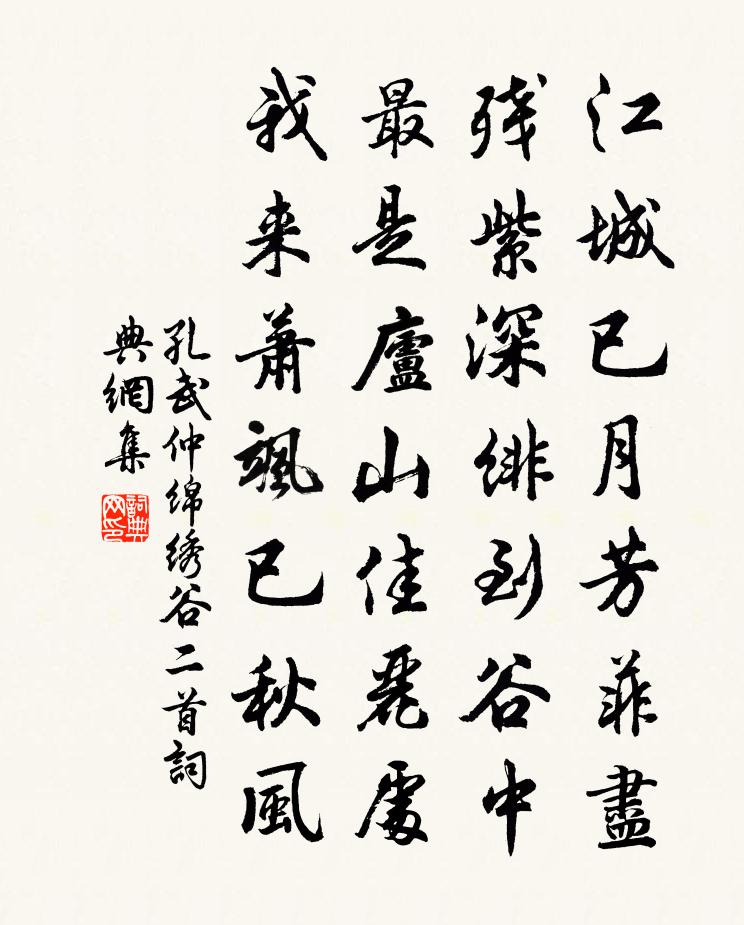 江城已月芳菲盡
残紫深緋到谷中
最是廬山佳麗處
我来蕭颯已秋風
孔武仲绵绣谷二首詞
典網集
詞典
网印